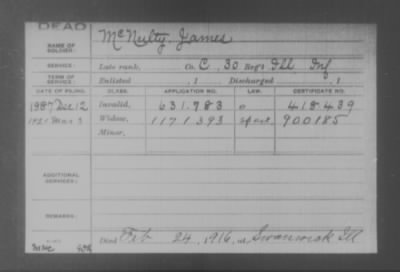 DEAD
NAME OF SOLDIER: McNulty, James
SERVICE: Late rank, Co. C, 30 Reg't Ill Inf
TERM OF SERVICE: Enlisted , 1 Discharged , 1
DATE OF FILING. CLASS. APPLICATION NO. LAW. CERTIFICATE NO.
1887 Dec 12 Invalid, 631.783 418.439
Widow, 1171393 900185
Minor,
ADDITIONAL SERVICES:
REMARKS:
Died Feb 24, 1916, at Swanwick Ill